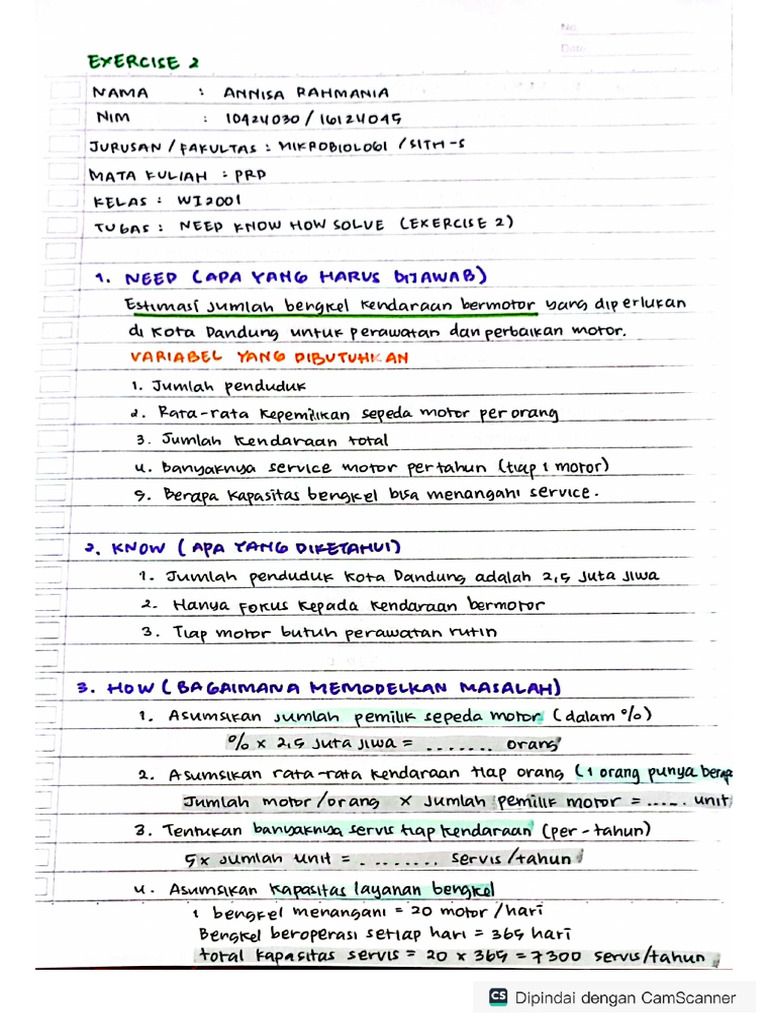 No.
Date
EXERCISE 2
NAMA : ANNISA RAHMANIA
NIM : 10424030 / 16124045
JURUSAN / FAKULTAS : MIKROBIOLOGI / SITH-S
MATA KULIAH : PRD
KELAS : WI2001
TUGAS : NEED KNOW HOW SOLVE (EXERCISE 2)
1. NEED (APA YANG HARUS DIJAWAB)
Estimasi jumlah bengkel kendaraan bermotor yang diperlukan
di Kota Dandung untuk perawatan dan perbaikan motor.
VARIABEL YANG DIBUTUHKAN
1. Jumlah penduduk
2. Rata-rata kepemilikan sepeda motor per orang
3. Jumlah kendaraan total
4. banyaknya service motor pertahun (tiap 1 motor)
5. Berapa kapasitas bengkel bisa menangani service.
2. KNOW (APA YANG DIKETAHUI)
1. Jumlah penduduk Kota Dandung adalah 2,5 juta jiwa
2. Hanya fokus kepada kendaraan bermotor
3. Tiap motor butuh perawatan rutin
3. HOW (BAGAIMANA MEMODELKAN MASALAH)
1. Asumsikan jumlah pemilik sepeda motor (dalam %)
% x 2,5 juta jiwa = ....... orang
2. Asumsikan rata-rata kendaraan tiap orang (1 orang punya berap
Jumlah motor/orang x jumlah pemilik motor = ..... unit
3. Tentukan banyaknya servis tiap kendaraan (per-tahun)
5x jumlah unit = ......... servis/tahun
4. Asumsikan kapasitas layanan bengkel
1 bengkel menangani = 20 motor/hari
Bengkel beroperasi setiap hari = 365 hari
total kapasitas servis = 20 x 365 = 7300 servis/tahun
CS Dipindai dengan CamScanner